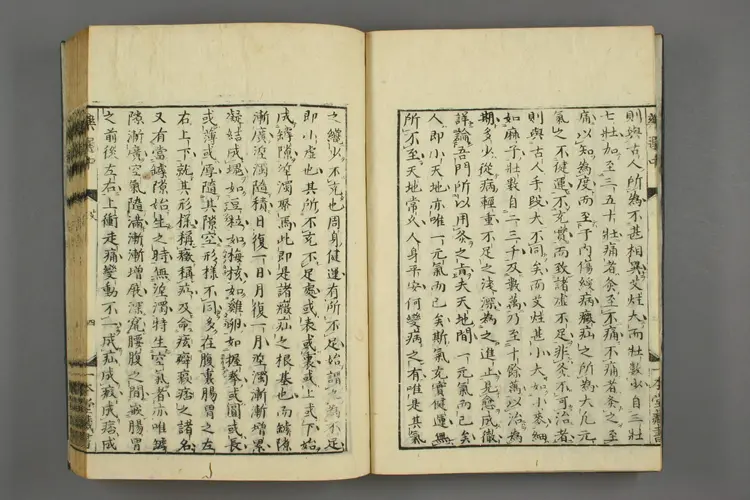 則與古人所為不甚相異艾炷大而壯數少自三壯
七壯加至三五十壯痛者灸至不痛不痛者灸之至
痛以知為度而至于内傷緩病癥疝之所為大凡元
氣之不健運不充實而致諸虛不足非灸不可治者
則與古人手段大不同矣而艾炷甚小大如小麥細
如麻子壯數自一二三千及數萬乃至十餘萬以治為
期多少從病輕重不足之淺深為之進止見愈成徹
詳論吾門所以用灸之意夫天地間一元氣而已
人即小天地亦唯一元氣而已矣斯氣充實健運無
所不至天地常久人身平安何變病之有唯是其氣
之纔少不充也周身健運有所不足始謂之為不足
即小虛也其所不充不足處或表或裏或上或下始
成罅隙溼濁聚焉此即是諸癥疝之根基也而罅隙
漸廣溼濁隨積日復一日月復一月溼濁漸漸增累
凝結成塊如豆粒如梅核如雞卵如握拳或圓或長
或薄或厚隨其隙空形樣不同多在腹裏腸胃之左
右上下就其形樣稱癥稱疝及命痃癖癥痞之諸名
又有當罅隙始生之時無溼濁特生空氣者亦唯罅
隙漸廣空氣隨滿漸漸增展漂流腰腹之間或腸胃
之前後左右上衝走痛變動不一成疝成瘕成痞成
藥選中
四